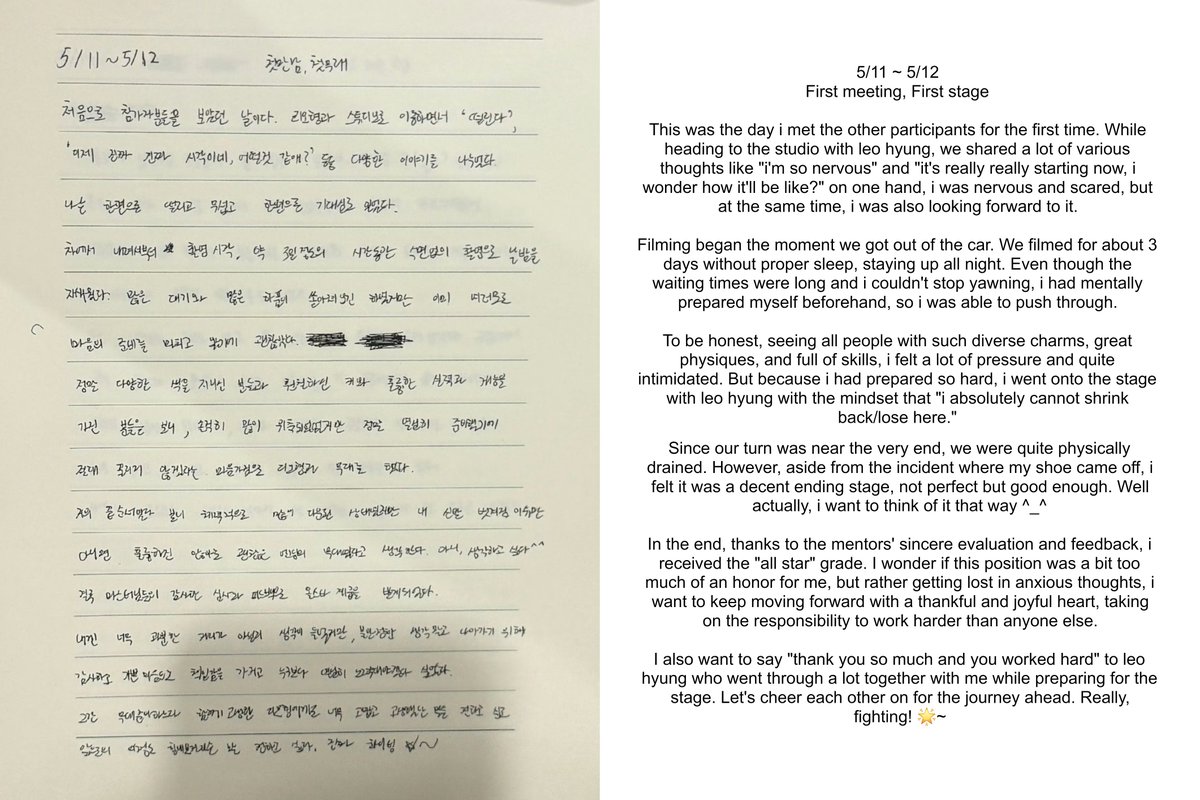 5/11 ~ 5/12 첫만남, 첫무대
처음으로 참가자분들을 보았던 날이다. 리오형과 스튜디오로 이동하면서 '떨린다',
'이제 진짜 진짜 시작이네, 어떨것 같애?' 등등 다양한 이야기를 나눴다.
나는 한편으로 떨리고 무섭고 한편으로 기대됐다.
차에서 내려서부터 촬영 시작, 약 3일 정도의 시간동안 수면없이 촬영으로 날밤을
지새웠다. 많은 대기와 많은 하품이 쏟아져 나오긴 하였지만 이미
마음의 준비를 마치고 왔기에 괜찮았다.
정말 다양한 색을 지니신 분들과 훤칠하신 키와 훌륭한 실력과 재능을
가진 분들을 보니, 솔직히 많이 위축되었었지만 정말 열심히 준비했기에
절대 꿀리지 않겠다는 마음가짐으로 리오형과 무대를 했다.
거의 끝순서였다 보니 체력적으로 상태였지만 내 신발 벗겨짐 이슈만
아니면 괜찮은 엔딩의 무대였다고 생각한다. 아니, 생각하고 싶다^^
결국 마스터님들의 감사한 심사와 피드백으로 올스타 계급을 받게되었다.
내겐 너무 과분한 자리가 아닐까 생각이 들었지만, 불안감만 생각 말고 나아가기 위해
감사하고 기쁜 마음으로 책임감을 가지고 누구보다 열심히 싶었다.
무대준비하느라 함께 고생한 리오형에게도 너무 고맙고 고생했다는 말을 전하고 싶고
앞으로의 여정도 힘내보자는 말 전하고 싶다. 진짜 화이팅 ~
5/11 ~ 5/12
First meeting, First stage
This was the day i met the other participants for the first time. While
heading to the studio with leo hyung, we shared a lot of various
thoughts like "i'm so nervous" and "it's really really starting now, i
wonder how it'll be like?" on one hand, i was nervous and scared, but
at the same time, i was also looking forward to it.
Filming began the moment we got out of the car. We filmed for about 3
days without proper sleep, staying up all night. Even though the
waiting times were long and i couldn't stop yawning, i had mentally
prepared myself beforehand, so i was able to push through.
To be honest, seeing all people with such diverse charms, great
physiques, and full of skills, i felt a lot of pressure and quite
intimidated. But because i had prepared so hard, i went onto the stage
with leo hyung with the mindset that "i absolutely cannot shrink
back/lose here."
Since our turn was near the very end, we were quite physically
drained. However, aside from the incident where my shoe came off, i
felt it was a decent ending stage, not perfect but good enough. Well
actually, i want to think of it that way ^_^
In the end, thanks to the mentors' sincere evaluation and feedback, i
received the "all star" grade. I wonder if this position was a bit too
much of an honor for me, but rather getting lost in anxious thoughts, i
want to keep moving forward with a thankful and joyful heart, taking
on the responsibility to work harder than anyone else.
I also want to say "thank you so much and you worked hard" to leo
hyung who went through a lot together with me while preparing for the
stage. Let's cheer each other on for the journey ahead. Really,
fighting! 🌟~